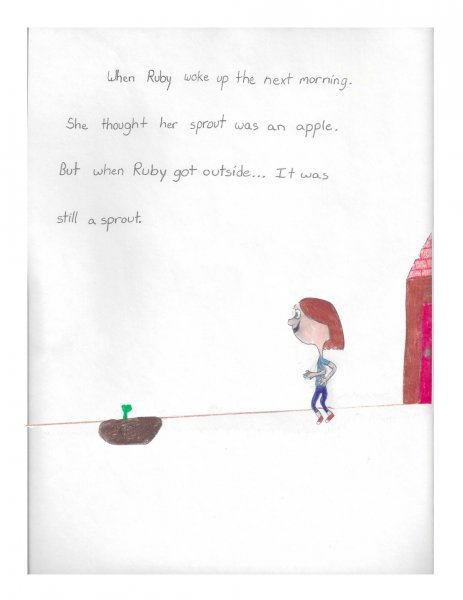 When Ruby woke up the next morning.
She thought her sprout was an apple.
But when Ruby got outside... It was
still a sprout.